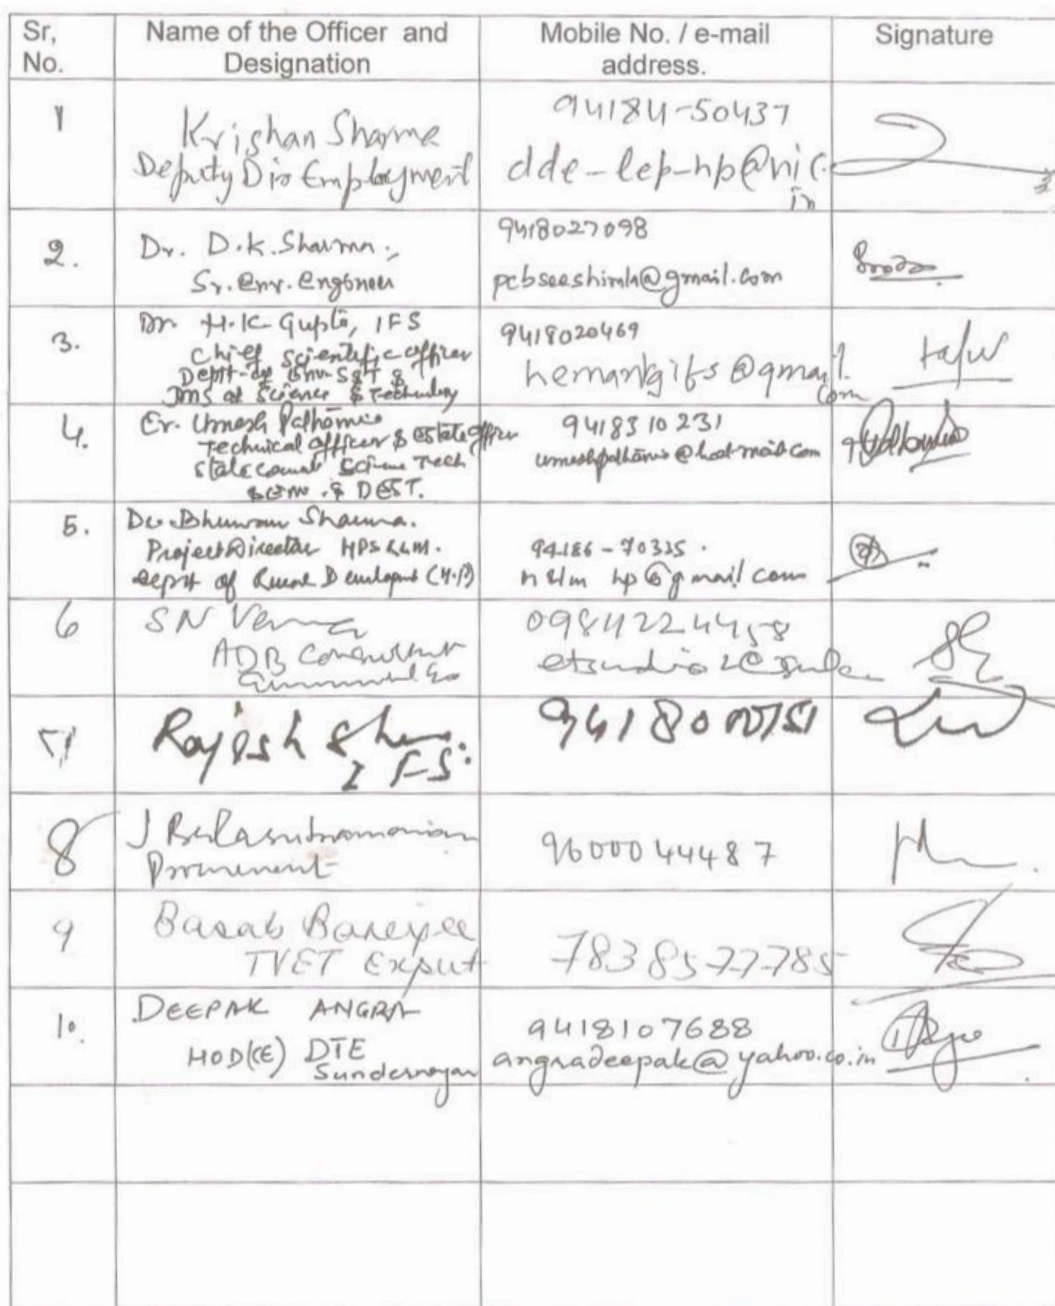 Sr, No.
Name of the Officer and Designation
Mobile No. / e-mail address.
Signature
1
Krishan Sharma
Deputy Dir Employment
94184-50437
dde-lep-hp@nic.
in
2.
Dr. D.K. Sharma,
Sr. Env. Engineer
9418027098
pcbseeshimla@gmail.com
3.
Dr. H.K. Gupta, IFS
Chief Scientific Officer
Deptt of Env. S&T &
of Science & Technology
9418020469
hemankgifs@gmail.
com
4.
Er. Umesh Pathania
Technical Officer & Estate Officer
State Council Science Tech
& Env. & DEST.
9418310231
umeshpathania@hotmail.com
5.
Bhuvan Sharma.
Project Director HPSRLM.
Deptt of Rural Development (H.P)
94186-70325.
nrlm hp@gmail com
6
SN Verma
ADB Consultant
09842224458
7
Rajesh
IFS.
8
J Balasubramanian
9600044487
9
Basab Banerjee
TVET Expert
7838577785
10.
DEEPAK ANGRA
HOD(CE) DTE
Sundernagar
9418107688
angradeepak@yahoo.co.in